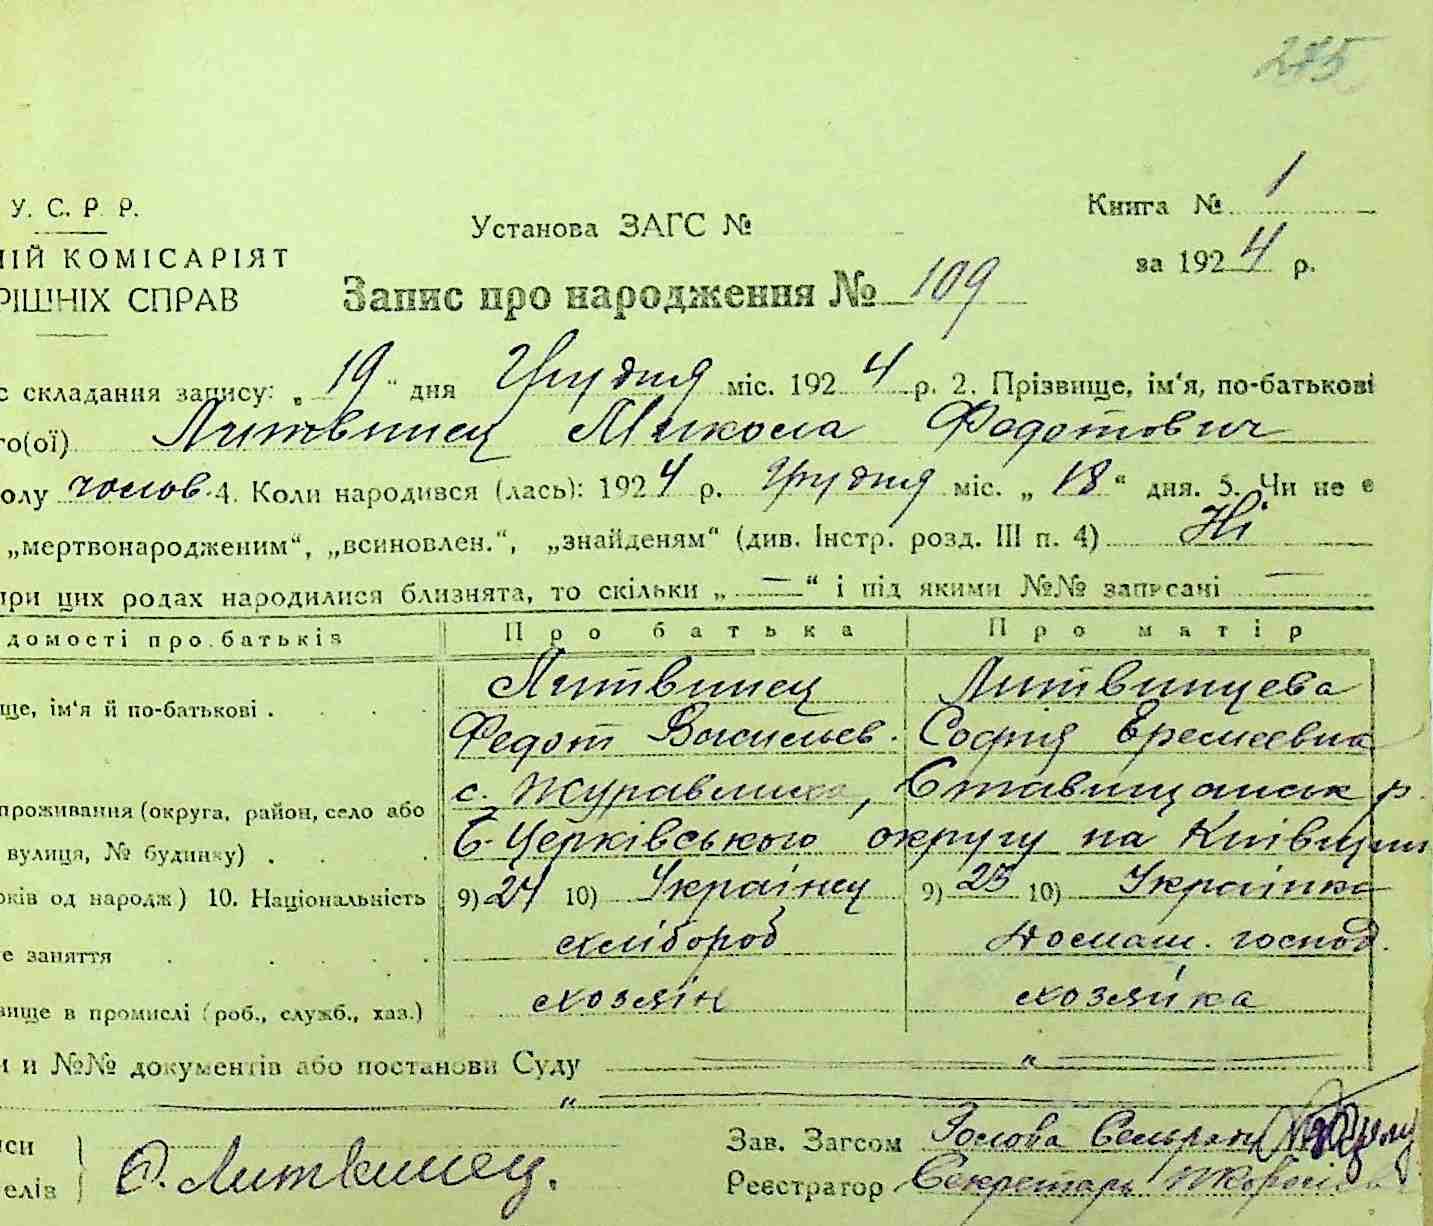 275
У. С. Р. Р.
Установа ЗАГС №
Книга № 1
НІЙ КОМІСАРІЯТ
за 1924 р.
РІШНІХ СПРАВ
Запис про народження № 109
с складання запису: „19“ дня Грудня міс. 1924 р. 2. Прізвище, ім'я, по-батькові
го(ої) Литвинец Микола Федотович
олу чолов. 4. Коли народився (лась): 1924 р. Грудня міс. „18“ дня. 5. Чи не є
„мертвонародженим“, „всиновлен.“, „знайденям“ (див. Інстр. розд. III п. 4) Ні
при цих родах народилися близнята, то скільки „—“ і під якими №№ записані —
домості про батьків Про батька Про матір
ще, ім'я й по-батькові . Литвинец Литвинцева
Федот Васильев. Софія Еремеевна
проживання (округа, район, село або с. Журавлиха, Ставищанськ р.
вулиця, № будинку) . Б-Церківського округу на Київщині
оків од народж) 10. Національність 9) 24 10) Українец 9) 25 10) Українка
е заняття хлібороб домаш. господ.
вище в промислі (роб., служб., хаз.) хозяїн хозяйка
и и №№ документів або постанови Суду — „ —
— „ —
иси Зав. Загсом Голова Сельради
елів Ф. Литвинец. Реєстратор Секретарь